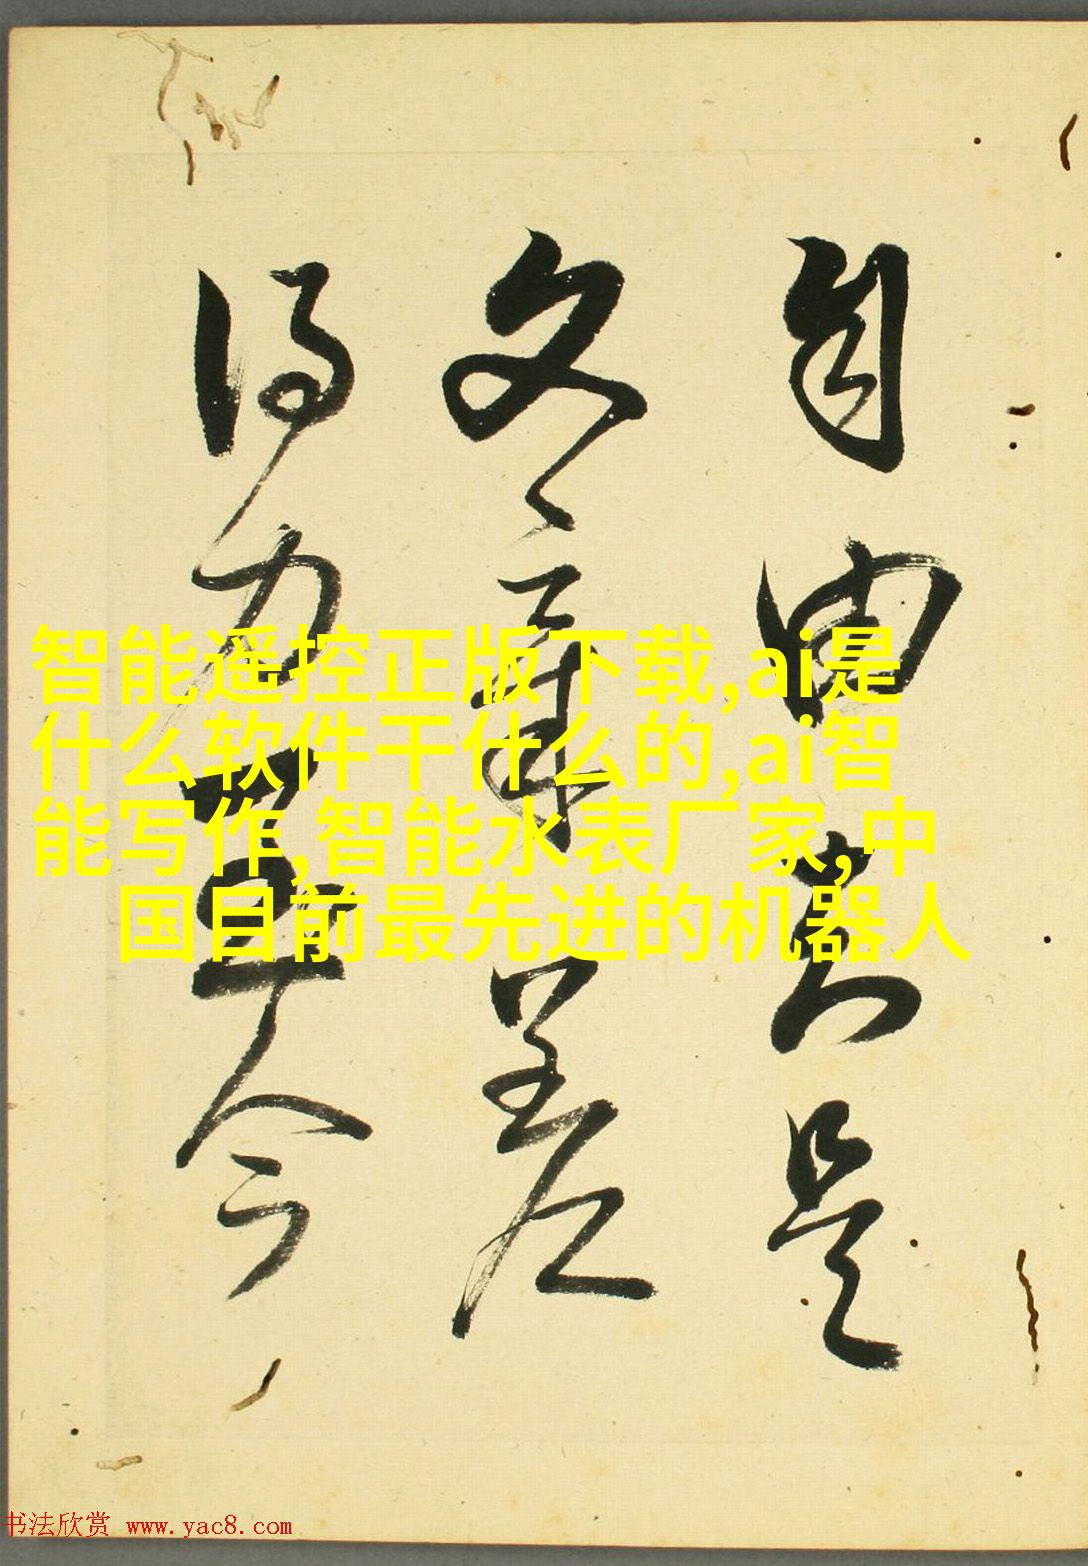 自由是
文章差
得力今
智能遥控正版下载,ai是
什么软件干什么的,ai智
能写作,智能水表厂家,中
国目前最先进的机器人
书法欣赏 www.yac8.com